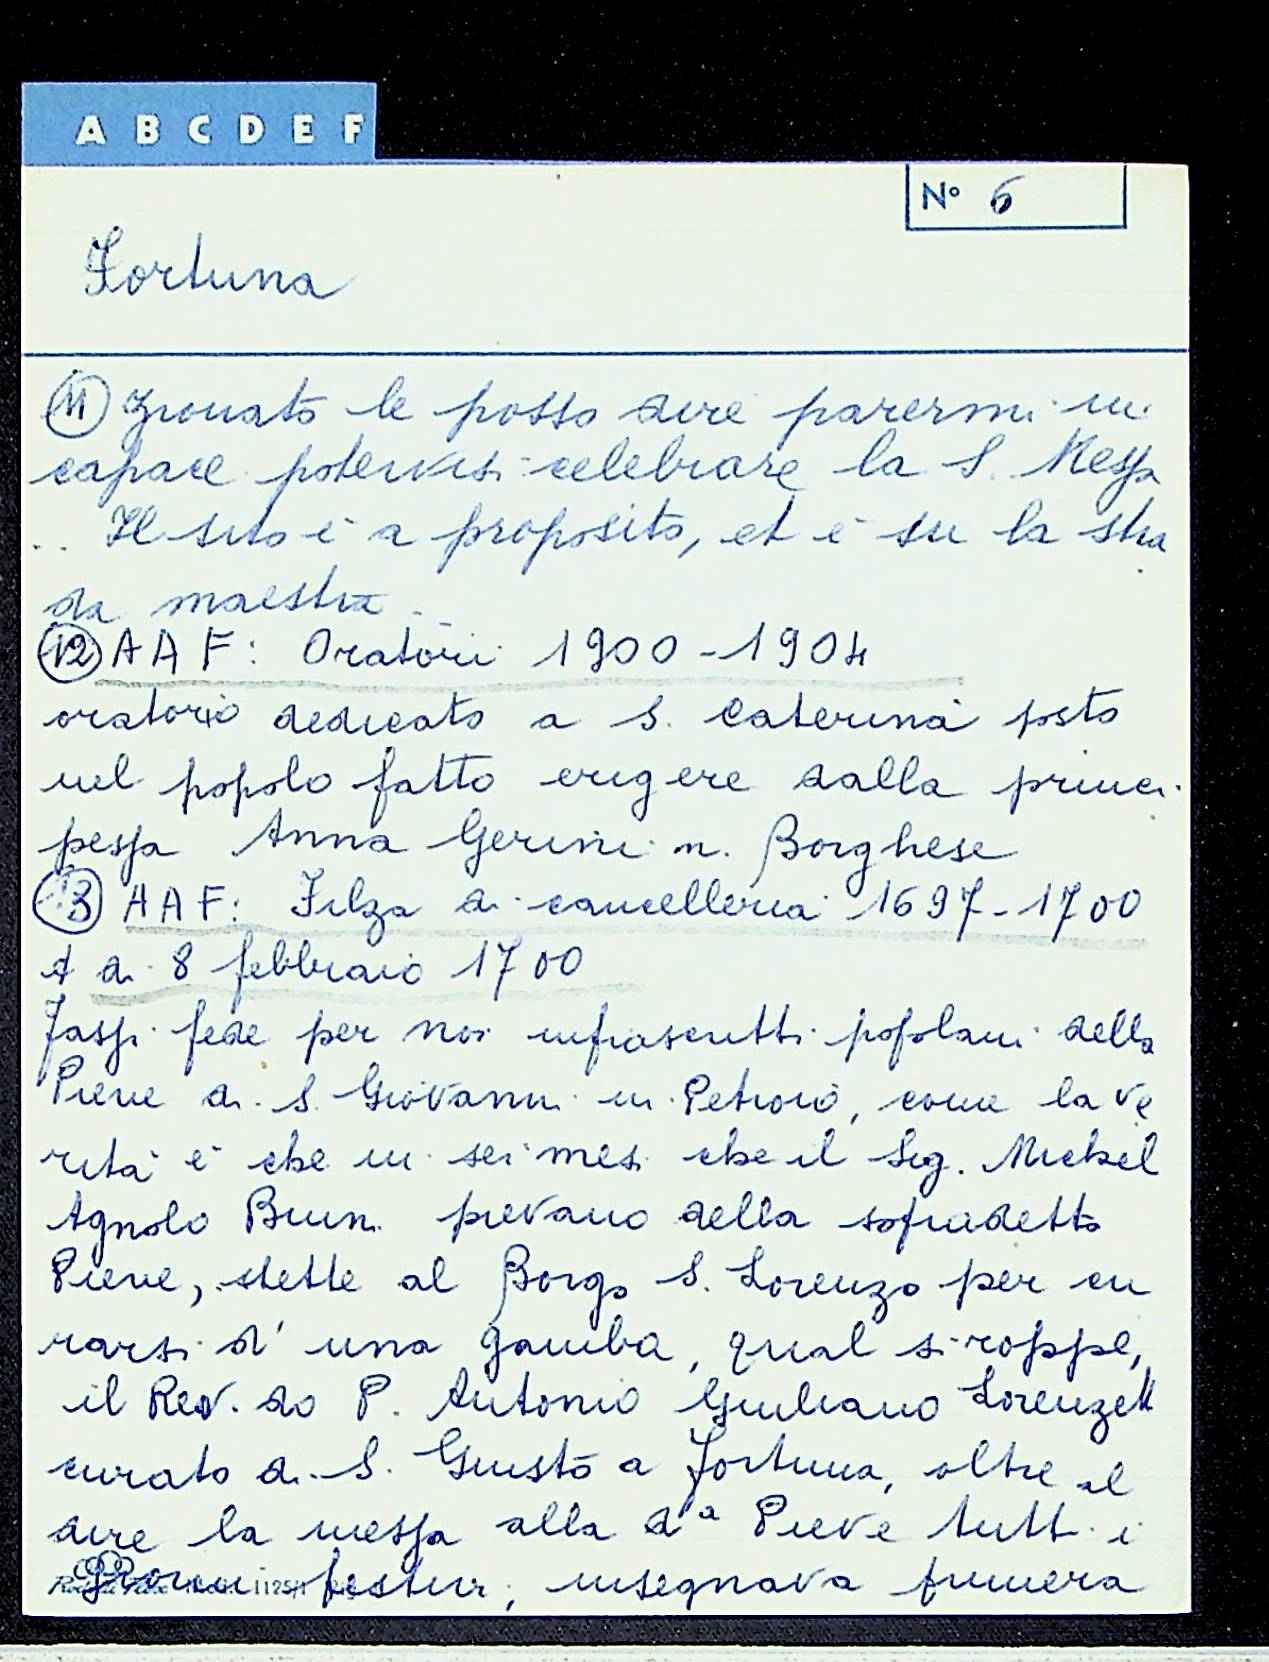 A B C D E F
N° 6
Fortuna
(11) zionato le posso dire parermi in
capace potervisi celebrare la S. Messa
.. Il sito è a proposito, et è su la stra
da maestra.
(12) AAF: Oratori 1900-1904
oratorio dedicato a S. Caterina posto
nel popolo fatto erigere dalla princi
pessa Anna Gerini n. Borghese
(13) AAF: Filza di cancelleria 1697-1700
A di 8 febbraio 1700
Fassi fede per noi infrascritti popolani della
Pieve di S. Giovanni in Petroio, come la ve
rità è che in sei mesi che il Sig. Michel
Agnolo pievano della sopradetta
Pieve, stette al Borgo S. Lorenzo per cu
rarsi d'una gamba, qual si roppe,
il Rev.do P. Antonio Giuliano Lorenzetti
curato di S. Giusto a Fortuna, oltre al
dire la messa alla d.ª Pieve tutti i
giorni festivi, insegnava